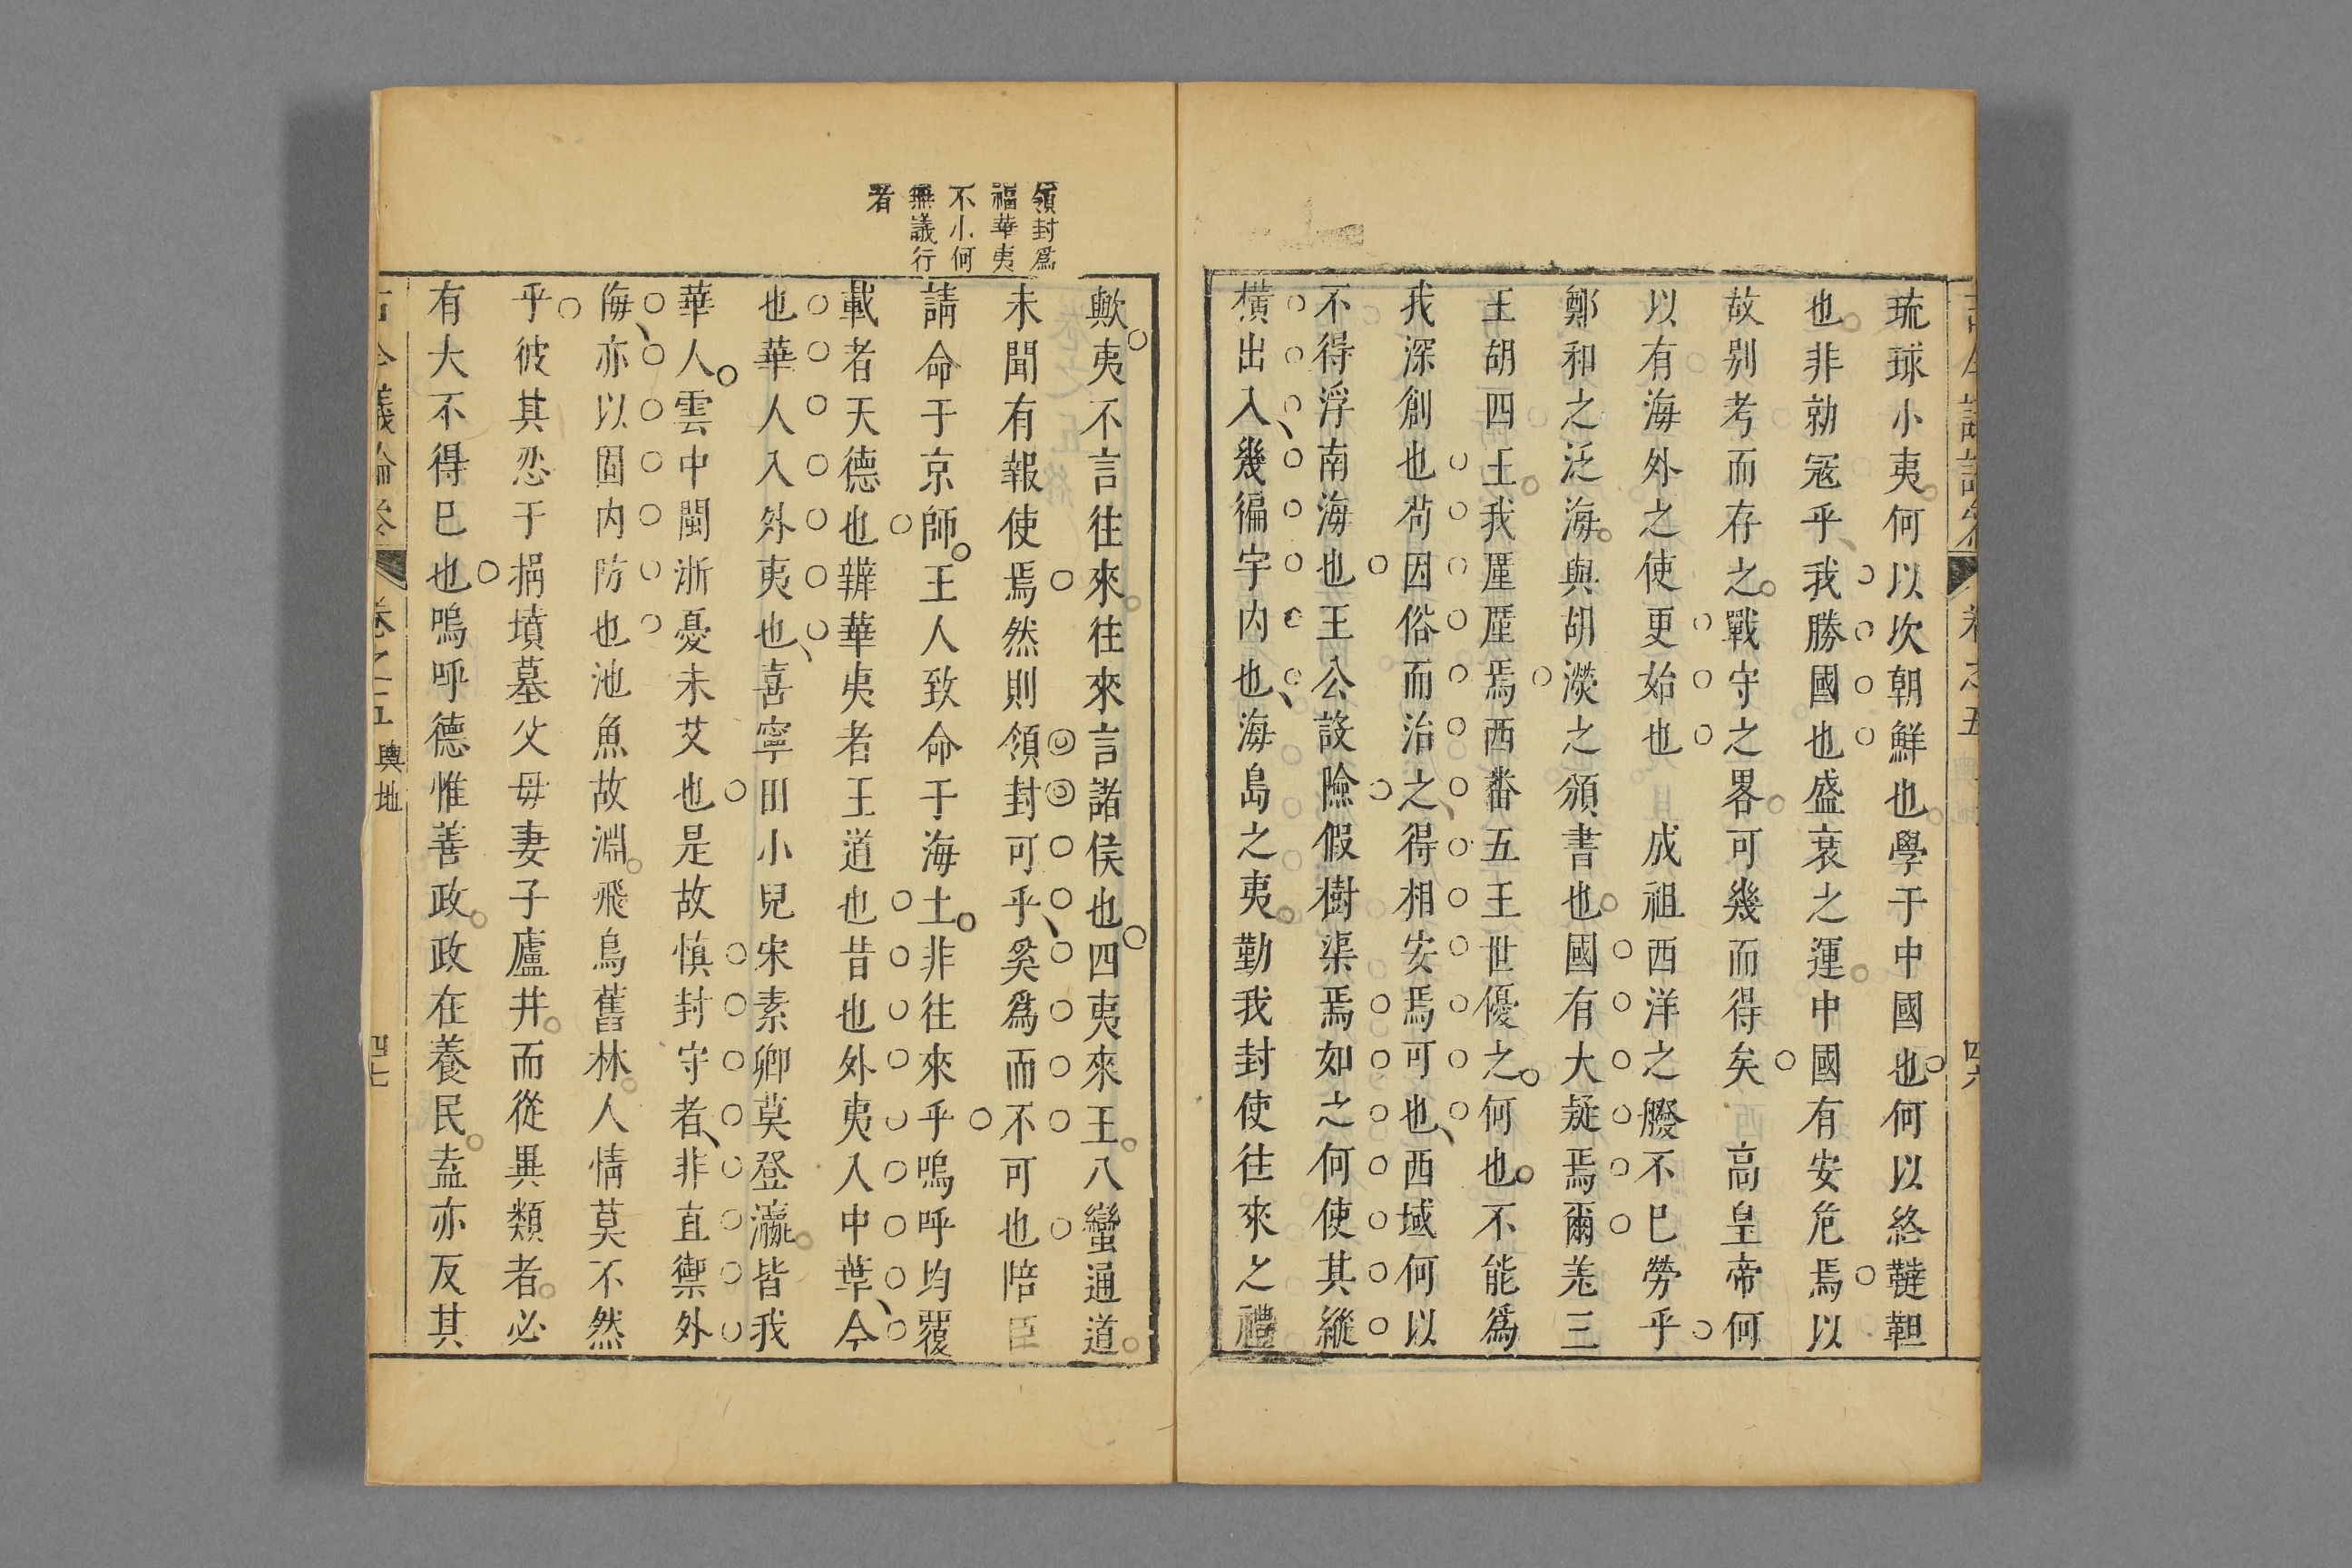 琉球小夷何以次朝鮮也學于中國也何以終韃靼
也非勍寇乎我勝國也盛衰之運中國有安危焉以
故别考而存之戰守之畧可幾而得矣 高皇帝何
以有海外之使更始也 成祖西洋之艘不巳勞乎
鄭和之泛海與胡濙之頒書也國有大疑焉爾羌三
王胡四王我厪厪焉西畨五王世優之何也不能爲
我深創也茍因俗而治之得相安焉可也西域何以
不得浮南海也王公設險假樹渠焉如之何使其縱
横出入幾徧宇内也海島之夷勤我封使往來之禮
歟夷不言往來往來言諸侯也四夷來王八蠻通道
未聞有報使焉然則領封可乎奚爲而不可也陪臣
請命于京師王人致命于海上非往來乎嗚呼均覆
載者天德也辨華夷者王道也昔也外夷入中華今
也華人入外夷也喜寧田小兒宋素卿莫登瀛皆我
華人雲中閩浙憂未艾也是故慎封守者非直禦外
侮亦以固内防也池魚故淵飛鳥舊林人情莫不然
乎彼其忍于捐墳墓父母妻子廬井而從異類者必
有大不得巳也嗚呼德惟善政政在養民盍亦反其
領封爲
福華夷
不小何
無議行
者
卷之五 輿地
四七
卷之五
四六